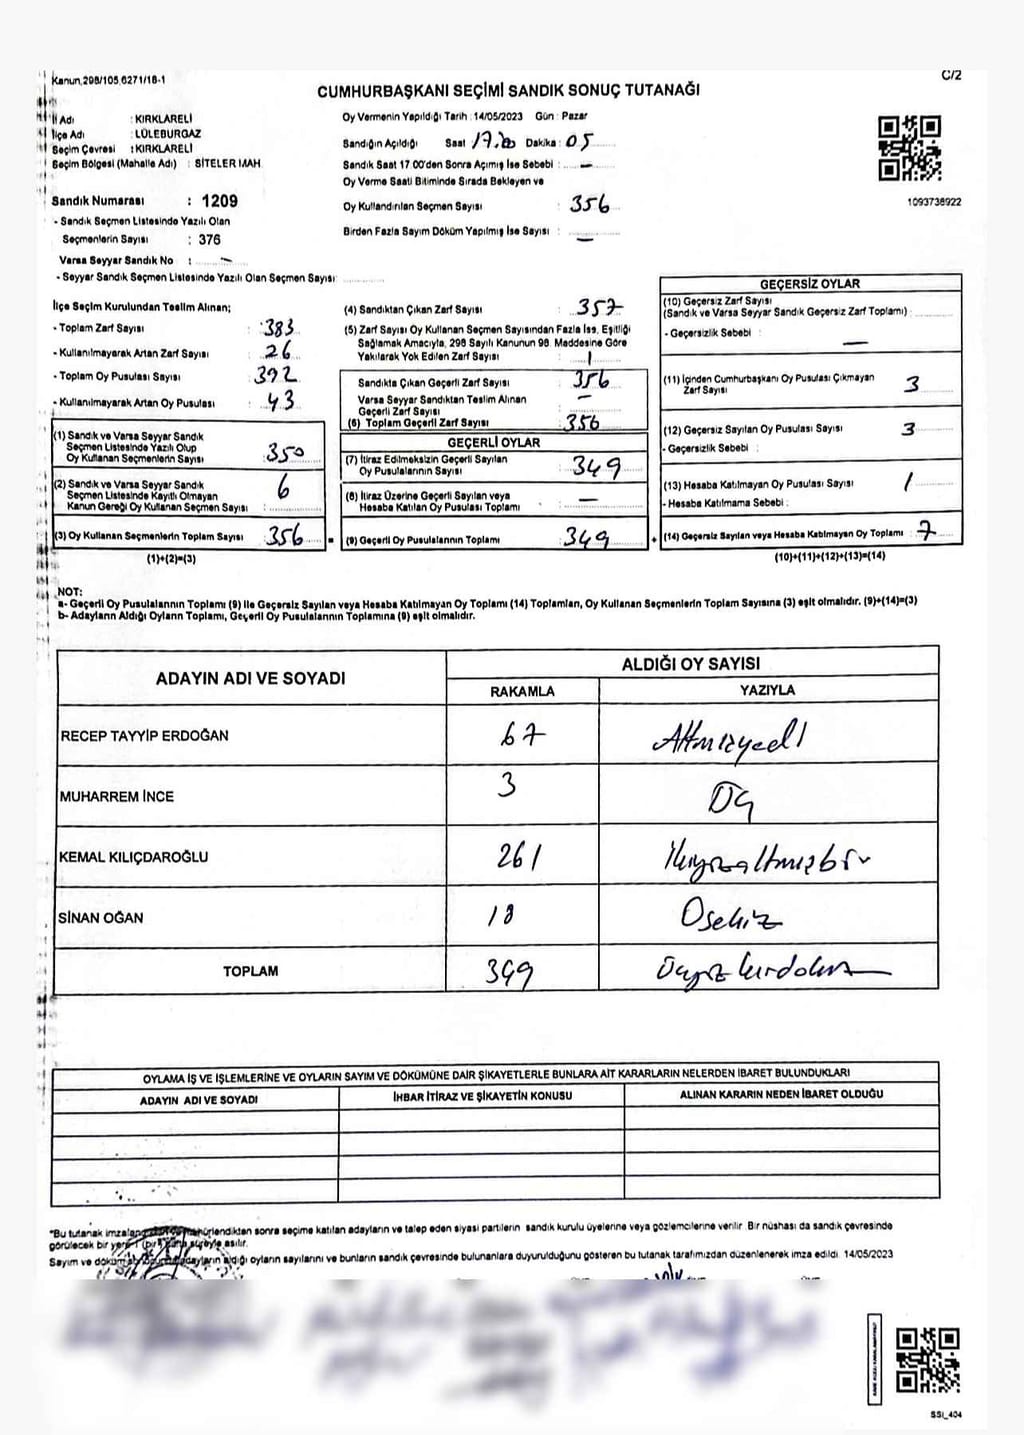 Kanun,298/105,6271/18-1
C/2
CUMHURBAŞKANI SEÇİMİ SANDIK SONUÇ TUTANAĞI
İl Adı : KIRKLARELİ
İlçe Adı : LÜLEBURGAZ
Seçim Çevresi : KIRKLARELİ
Seçim Bölgesi (Mahalle Adı) : SİTELER MAH.
Sandık Numarası : 1209
- Sandık Seçmen Listesinde Yazılı Olan
Seçmenlerin Sayısı : 376
Varsa Seyyar Sandık No : -
- Seyyar Sandık Seçmen Listesinde Yazılı Olan Seçmen Sayısı:
Oy Vermenin Yapıldığı Tarih : 14/05/2023 Gün : Pazar
Sandığın Açıldığı Saat Dakika : 05
Sandık Saat 17 00'den Sonra Açımış İse Sebebi : -
Oy Verme Saati Bitiminde Sırada Bekleyen ve
Oy Kullandırılan Seçmen Sayısı : 356
Birden Fazla Sayım Döküm Yapılmış İse Sayısı : -
1093738922
İlçe Seçim Kurulundan Teslim Alınan;
- Toplam Zarf Sayısı : 383
- Kullanılmayarak Artan Zarf Sayısı : 26
- Toplam Oy Pusulası Sayısı : 392
- Kullanılmayarak Artan Oy Pusulası : 43
(1) Sandık ve Varsa Seyyar Sandık
Seçmen Listesinde Yazılı Olup
Oy Kullanan Seçmenlerin Sayısı : 350
(2) Sandık ve Varsa Seyyar Sandık
Seçmen Listesinde Kayıtlı Olmayan
Kanun Gereği Oy Kullanan Seçmen Sayısı : 6
(3) Oy Kullanan Seçmenlerin Toplam Sayısı : 356
(1)+(2)=(3)
(4) Sandıktan Çıkan Zarf Sayısı : 357
(5) Zarf Sayısı Oy Kullanan Seçmen Sayısından Fazla İse, Eşitliği
Sağlamak Amacıyla, 298 Sayılı Kanunun 98. Maddesine Göre
Yakılarak Yok Edilen Zarf Sayısı : 1
Sandıkta Çıkan Geçerli Zarf Sayısı : 356
Varsa Seyyar Sandıktan Teslim Alınan
Geçerli Zarf Sayısı : -
(6) Toplam Geçerli Zarf Sayısı : 356
GEÇERLİ OYLAR
(7) İtiraz Edilmeksizin Geçerli Sayılan
Oy Pusulalarının Sayısı : 349
(8) İtiraz Üzerine Geçerli Sayılan veya
Hesaba Katılan Oy Pusulası Toplamı : -
= (9) Geçerli Oy Pusulalarının Toplamı : 349
GEÇERSİZ OYLAR
(10) Geçersiz Zarf Sayısı
(Sandık ve Varsa Seyyar Sandık Geçersiz Zarf Toplamı) :
- Geçersizlik Sebebi : -
(11) İçinden Cumhurbaşkanı Oy Pusulası Çıkmayan
Zarf Sayısı : 3
(12) Geçersiz Sayılan Oy Pusulası Sayısı : 3
- Geçersizlik Sebebi :
(13) Hesaba Katılmayan Oy Pusulası Sayısı : 1
- Hesaba Katılmama Sebebi :
+ (14) Geçersiz Sayılan veya Hesaba Katılmayan Oy Toplamı : 7
(10)+(11)+(12)+(13)=(14)
NOT:
a- Geçerli Oy Pusulalarının Toplamı (9) ile Geçersiz Sayılan veya Hesaba Katılmayan Oy Toplamı (14) Toplamları, Oy Kullanan Seçmenlerin Toplam Sayısına (3) eşit olmalıdır. (9)+(14)=(3)
b- Adayların Aldığı Oyların Toplamı, Geçerli Oy Pusulalarının Toplamına (9) eşit olmalıdır.
ADAYIN ADI VE SOYADI ALDIĞI OY SAYISI
RAKAMLA YAZIYLA
RECEP TAYYİP ERDOĞAN 67 Altmışyedi
MUHARREM İNCE 3 Üç
KEMAL KILIÇDAROĞLU 261 İkiyüzaltmışbir
SİNAN OĞAN 18 Onsekiz
TOPLAM 349 Üçyüzkırkdokuz
OYLAMA İŞ VE İŞLEMLERİNE VE OYLARIN SAYIM VE DÖKÜMÜNE DAİR ŞİKAYETLERLE BUNLARA AİT KARARLARIN NELERDEN İBARET BULUNDUKLARI
ADAYIN ADI VE SOYADI İHBAR İTİRAZ VE ŞİKAYETİN KONUSU ALINAN KARARIN NEDEN İBARET OLDUĞU
*Bu tutanak mühürlendikten sonra seçime katılan adayların ve talep eden siyasi partilerin sandık kurulu üyelerine veya gözlemcilerine verilir. Bir nüshası da sandık çevresinde
görülecek bir yere süreyle asılır.
Sayım ve adayların aldığı oyların sayılarını ve bunların sandık çevresinde bulunanlara duyurulduğunu gösteren bu tutanak tarafımızdan düzenlenerek imza edildi. 14/05/2023
SSI_404